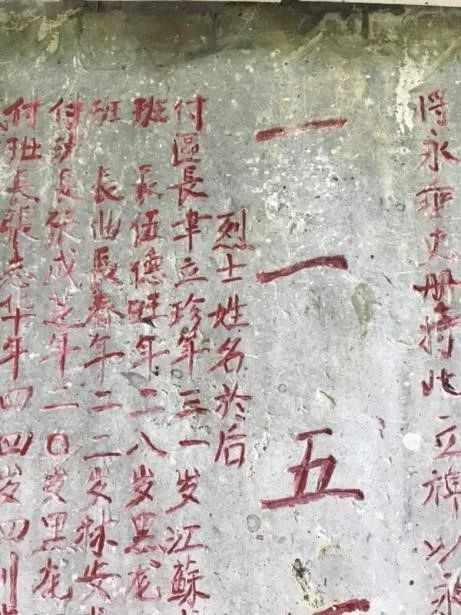 将永垂史册特此立碑以永
一一五
烈士姓名於后
付區長立珍年三一岁江蘇
班長伍德旺年二八岁黑龙
班長曲長春年二二岁林安
付班長張成芝年二0岁黑龙
付班長張志华年四四岁四川